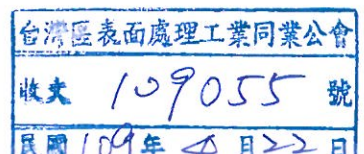 台灣區表面處理工業同業公會
收文 109055 號
民國109年4月22日